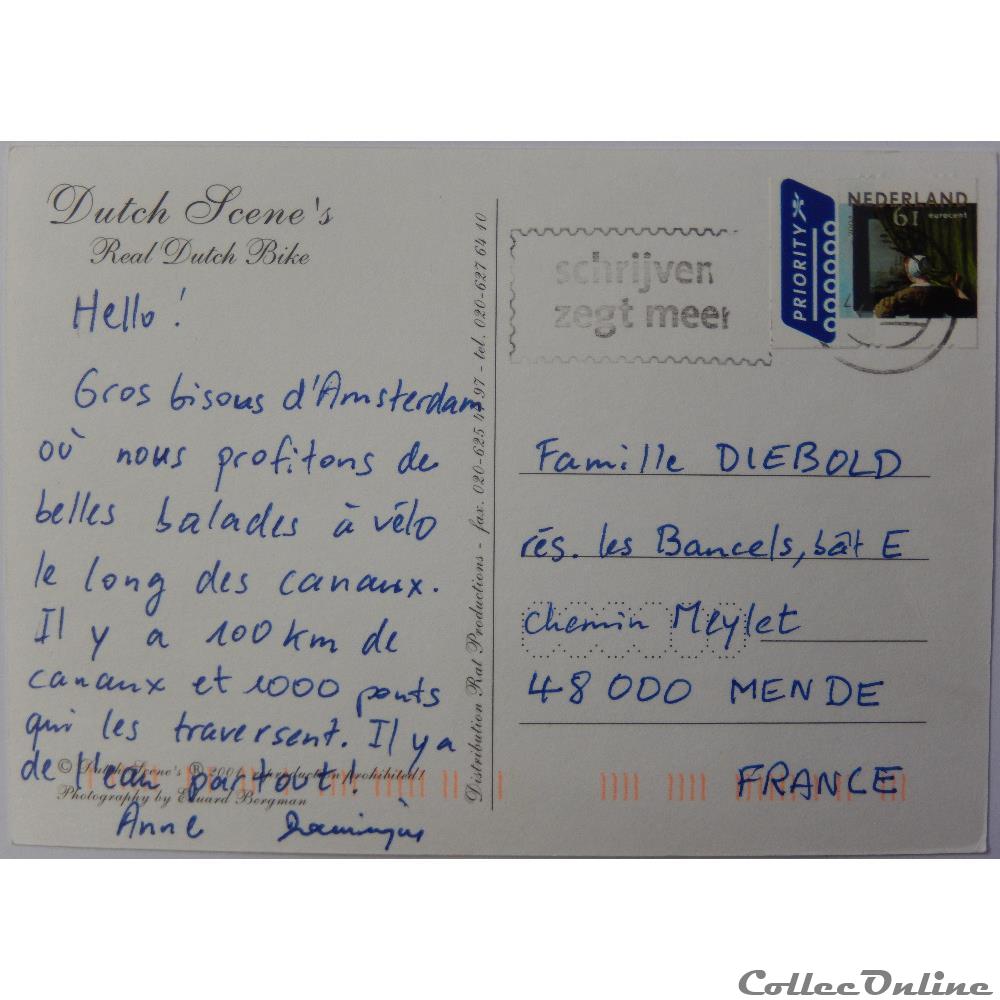 Dutch Scene's
Real Dutch Bike
Hello!
Gros bisous d'Amsterdam
où nous profitons de
belles balades à vélo
le long des canaux.
Il y a 100 km de
canaux et 1000 ponts
qui les traversent. Il y a
de l'eau partout!
Anne Dominique
© Dutch Scene's ® reproduction prohibited!
Photography by Eduard Bergman
Distribution Rat Productions - fax. 020-625 97 - tel. 020-627 64 10
schrijven
zegt meer
PRIORITY
NEDERLAND
61 eurocent
Famille DIEBOLD
rés. les Bancels, bât E
chemin Meylet
48000 MENDE
FRANCE
CollecOnline